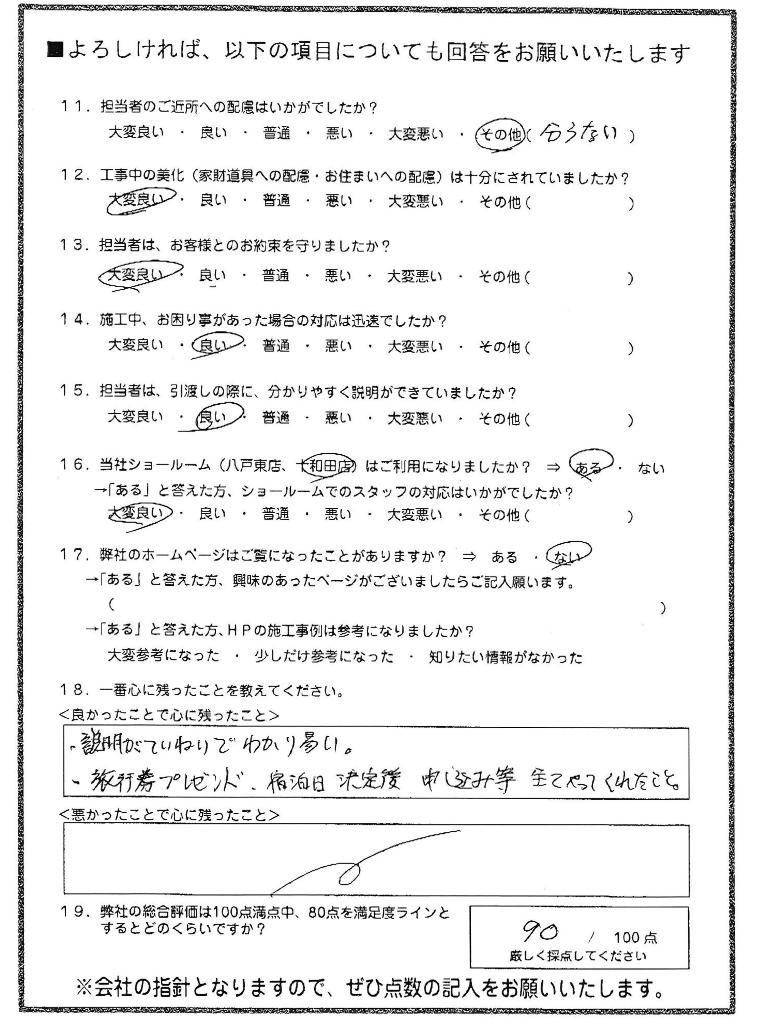 ■よろしければ、以下の項目についても回答をお願いいたします
11．担当者のご近所への配慮はいかがでしたか？
大変良い ・ 良い ・ 普通 ・ 悪い ・ 大変悪い ・ その他（ 分らない ）
12．工事中の美化（家財道具への配慮・お住まいへの配慮）は十分にされていましたか？
大変良い ・ 良い ・ 普通 ・ 悪い ・ 大変悪い ・ その他（ ）
13．担当者は、お客様とのお約束を守りましたか？
大変良い ・ 良い ・ 普通 ・ 悪い ・ 大変悪い ・ その他（ ）
14．施工中、お困り事があった場合の対応は迅速でしたか？
大変良い ・ 良い ・ 普通 ・ 悪い ・ 大変悪い ・ その他（ ）
15．担当者は、引渡しの際に、分かりやすく説明ができていましたか？
大変良い ・ 良い ・ 普通 ・ 悪い ・ 大変悪い ・ その他（ ）
16．当社ショールーム（八戸東店、十和田店）はご利用になりましたか？ ⇒ ある ・ ない
→「ある」と答えた方、ショールームでのスタッフの対応はいかがでしたか？
大変良い ・ 良い ・ 普通 ・ 悪い ・ 大変悪い ・ その他（ ）
17．弊社のホームページはご覧になったことがありますか？ ⇒ ある ・ ない
→「ある」と答えた方、興味のあったページがございましたらご記入願います。
（ ）
→「ある」と答えた方、ＨＰの施工事例は参考になりましたか？
大変参考になった ・ 少しだけ参考になった ・ 知りたい情報がなかった
18．一番心に残ったことを教えてください。
＜良かったことで心に残ったこと＞
・説明がていねいでわかり易い。
・旅行券プレゼント、宿泊日決定後 申し込み等 全てやってくれたこと。
＜悪かったことで心に残ったこと＞
19．弊社の総合評価は100点満点中、80点を満足度ラインと
するとどのくらいですか？
90 / 100点
厳しく採点してください
※会社の指針となりますので、ぜひ点数の記入をお願いいたします。